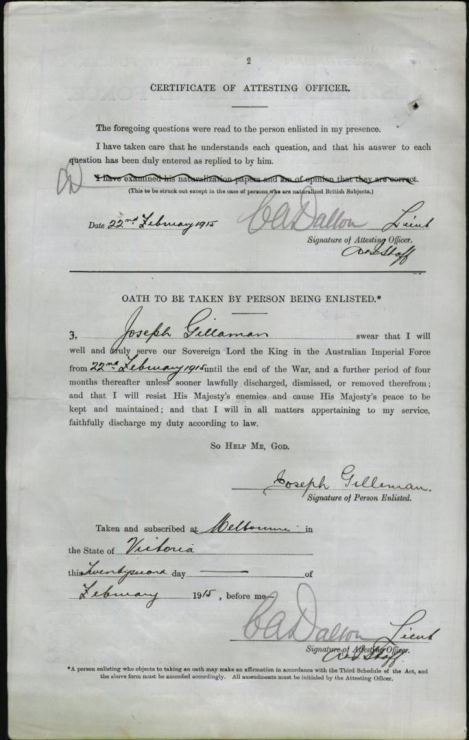 2
CERTIFICATE OF ATTESTING OFFICER.
The foregoing questions were read to the person enlisted in my presence.
I have taken care that he understands each question, and that his answer to each
question has been duly entered as replied to by him.
I have examined his naturalization papers and am of opinion that they are correct.
(This to be struck out except in the case of persons who are naturalized British Subjects.)
Date 22nd February 1915 CADalton Lieut
Signature of Attesting Officer.
OATH TO BE TAKEN BY PERSON BEING ENLISTED.*
I, Joseph Gilleman swear that I will
well and truly serve our Sovereign Lord the King in the Australian Imperial Force
from 22nd February 1915 until the end of the War, and a further period of four
months thereafter unless sooner lawfully discharged, dismissed, or removed therefrom;
and that I will resist His Majesty's enemies and cause His Majesty's peace to be
kept and maintained; and that I will in all matters appertaining to my service,
faithfully discharge my duty according to law.
SO HELP ME, GOD.
Joseph Gilleman.
Signature of Person Enlisted.
Taken and subscribed at Melbourne in
the State of Victoria
this Twentysecond day of
February 1915, before me
CADalton Lieut
Signature of Attesting Officer.
*A person enlisting who objects to taking an oath may make an affirmation in accordance with the Third Schedule of the Act, and
the above form must be amended accordingly. All amendments must be initialed by the Attesting Officer.